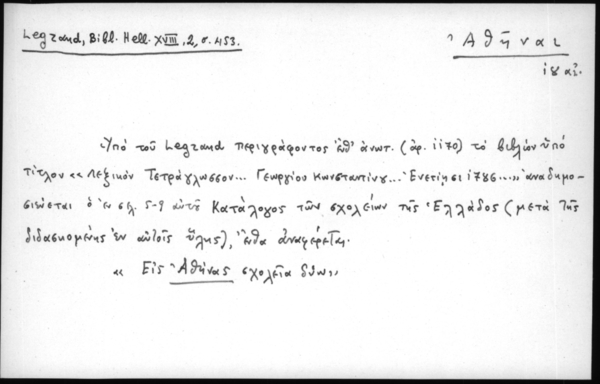 Legrand, Bibl. Hell. XVIII, 2, σ. 453.
Ἀθῆναι
ιη αἰ.
Ὑπό τοῦ Legrand περιγράφοντος ἔνθ' ἀνωτ. (ἀρ. 1170) τό βιβλίον ὑπό
τίτλον «Λεξικόν Τετράγλωσσον... Γεωργίου Κωνσταντίνου... Ἐνετίῃσι 1786...» ἀναδημο-
σιεύεται ὁ ἐν σελ. 5-9 αὐτοῦ Κατάλογος τῶν σχολείων τῆς Ἑλλάδος (μετά τῆς
διδασκομένης ἐν αὐτοῖς ὕλης), ἔνθα ἀναφέρεται.
«Εἰς Ἀθήνας σχολεῖα δύω»